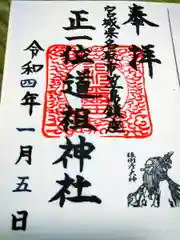 奉拝
宮城県名取市 鎮座
正一位道祖神社
令和四年一月五日
猿田彦大神